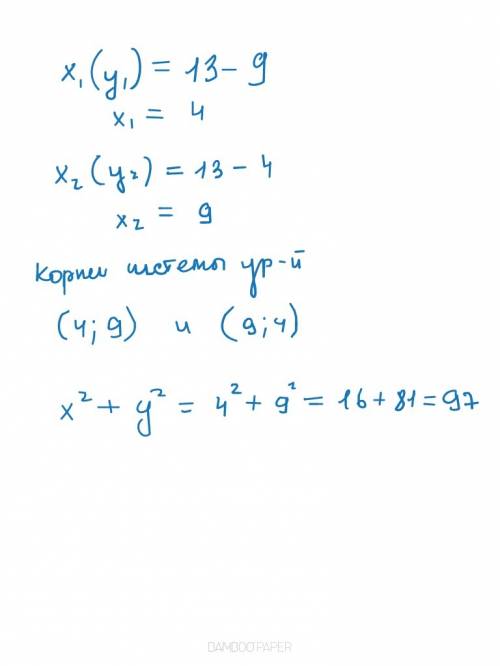 x₁(y₁) = 13 - 9
x₁ = 4
x₂(y₂) = 13 - 4
x₂ = 9
Корни системы ур-й
(4; 9) и (9; 4)
x² + y² = 4² + 9² = 16 + 81 = 97
BAMBOOPAPER